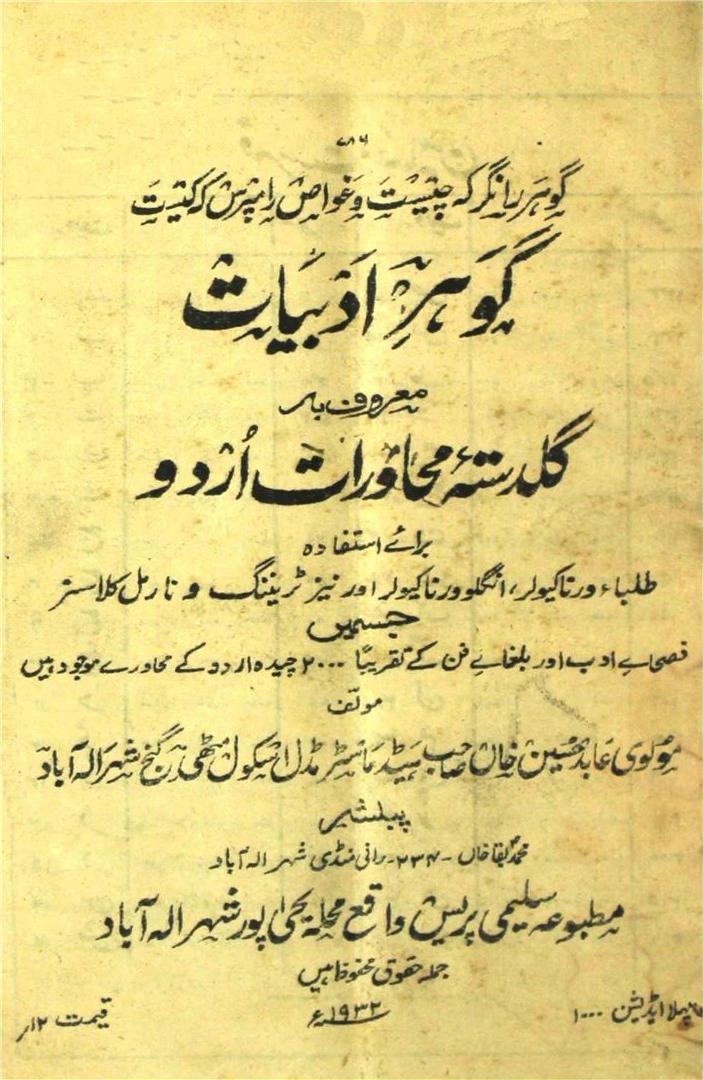 ۷۸۶
گوہر را نگر کہ چیست و غواص را مپرس کہ کیست
گوہرِ ادبیات
معروف بہ
گلدستۂ محاورات اُردو
برائے استفادہ
طلباء ورناکیولر، انگلوورناکیولر اور نیز ٹریننگ و نارمل کلاسنز
جسمیں
فصحاے ادب اور بلغاے فن کے تقریباً ۲۰۰۰ چیدہ اردو کے محاورے موجود ہیں
مولف
مولوی عابد حسین خاں صاحب ہیڈ ماسٹر مڈل اسکول مٹھی گنج شہر الہ آباد
پبلشیر
محمد بقا خاں - ۲۳۴ - رانی منڈی شہر الہ آباد
مطبوعہ سلیمی پریس واقع محلہ یحیٰ پور شہر الہ آباد
جملہ حقوق محفوظ ہیں
پہلا ایڈیشن ۱۰۰۰
۱۹۳۲ء
قیمت ۱۲؍